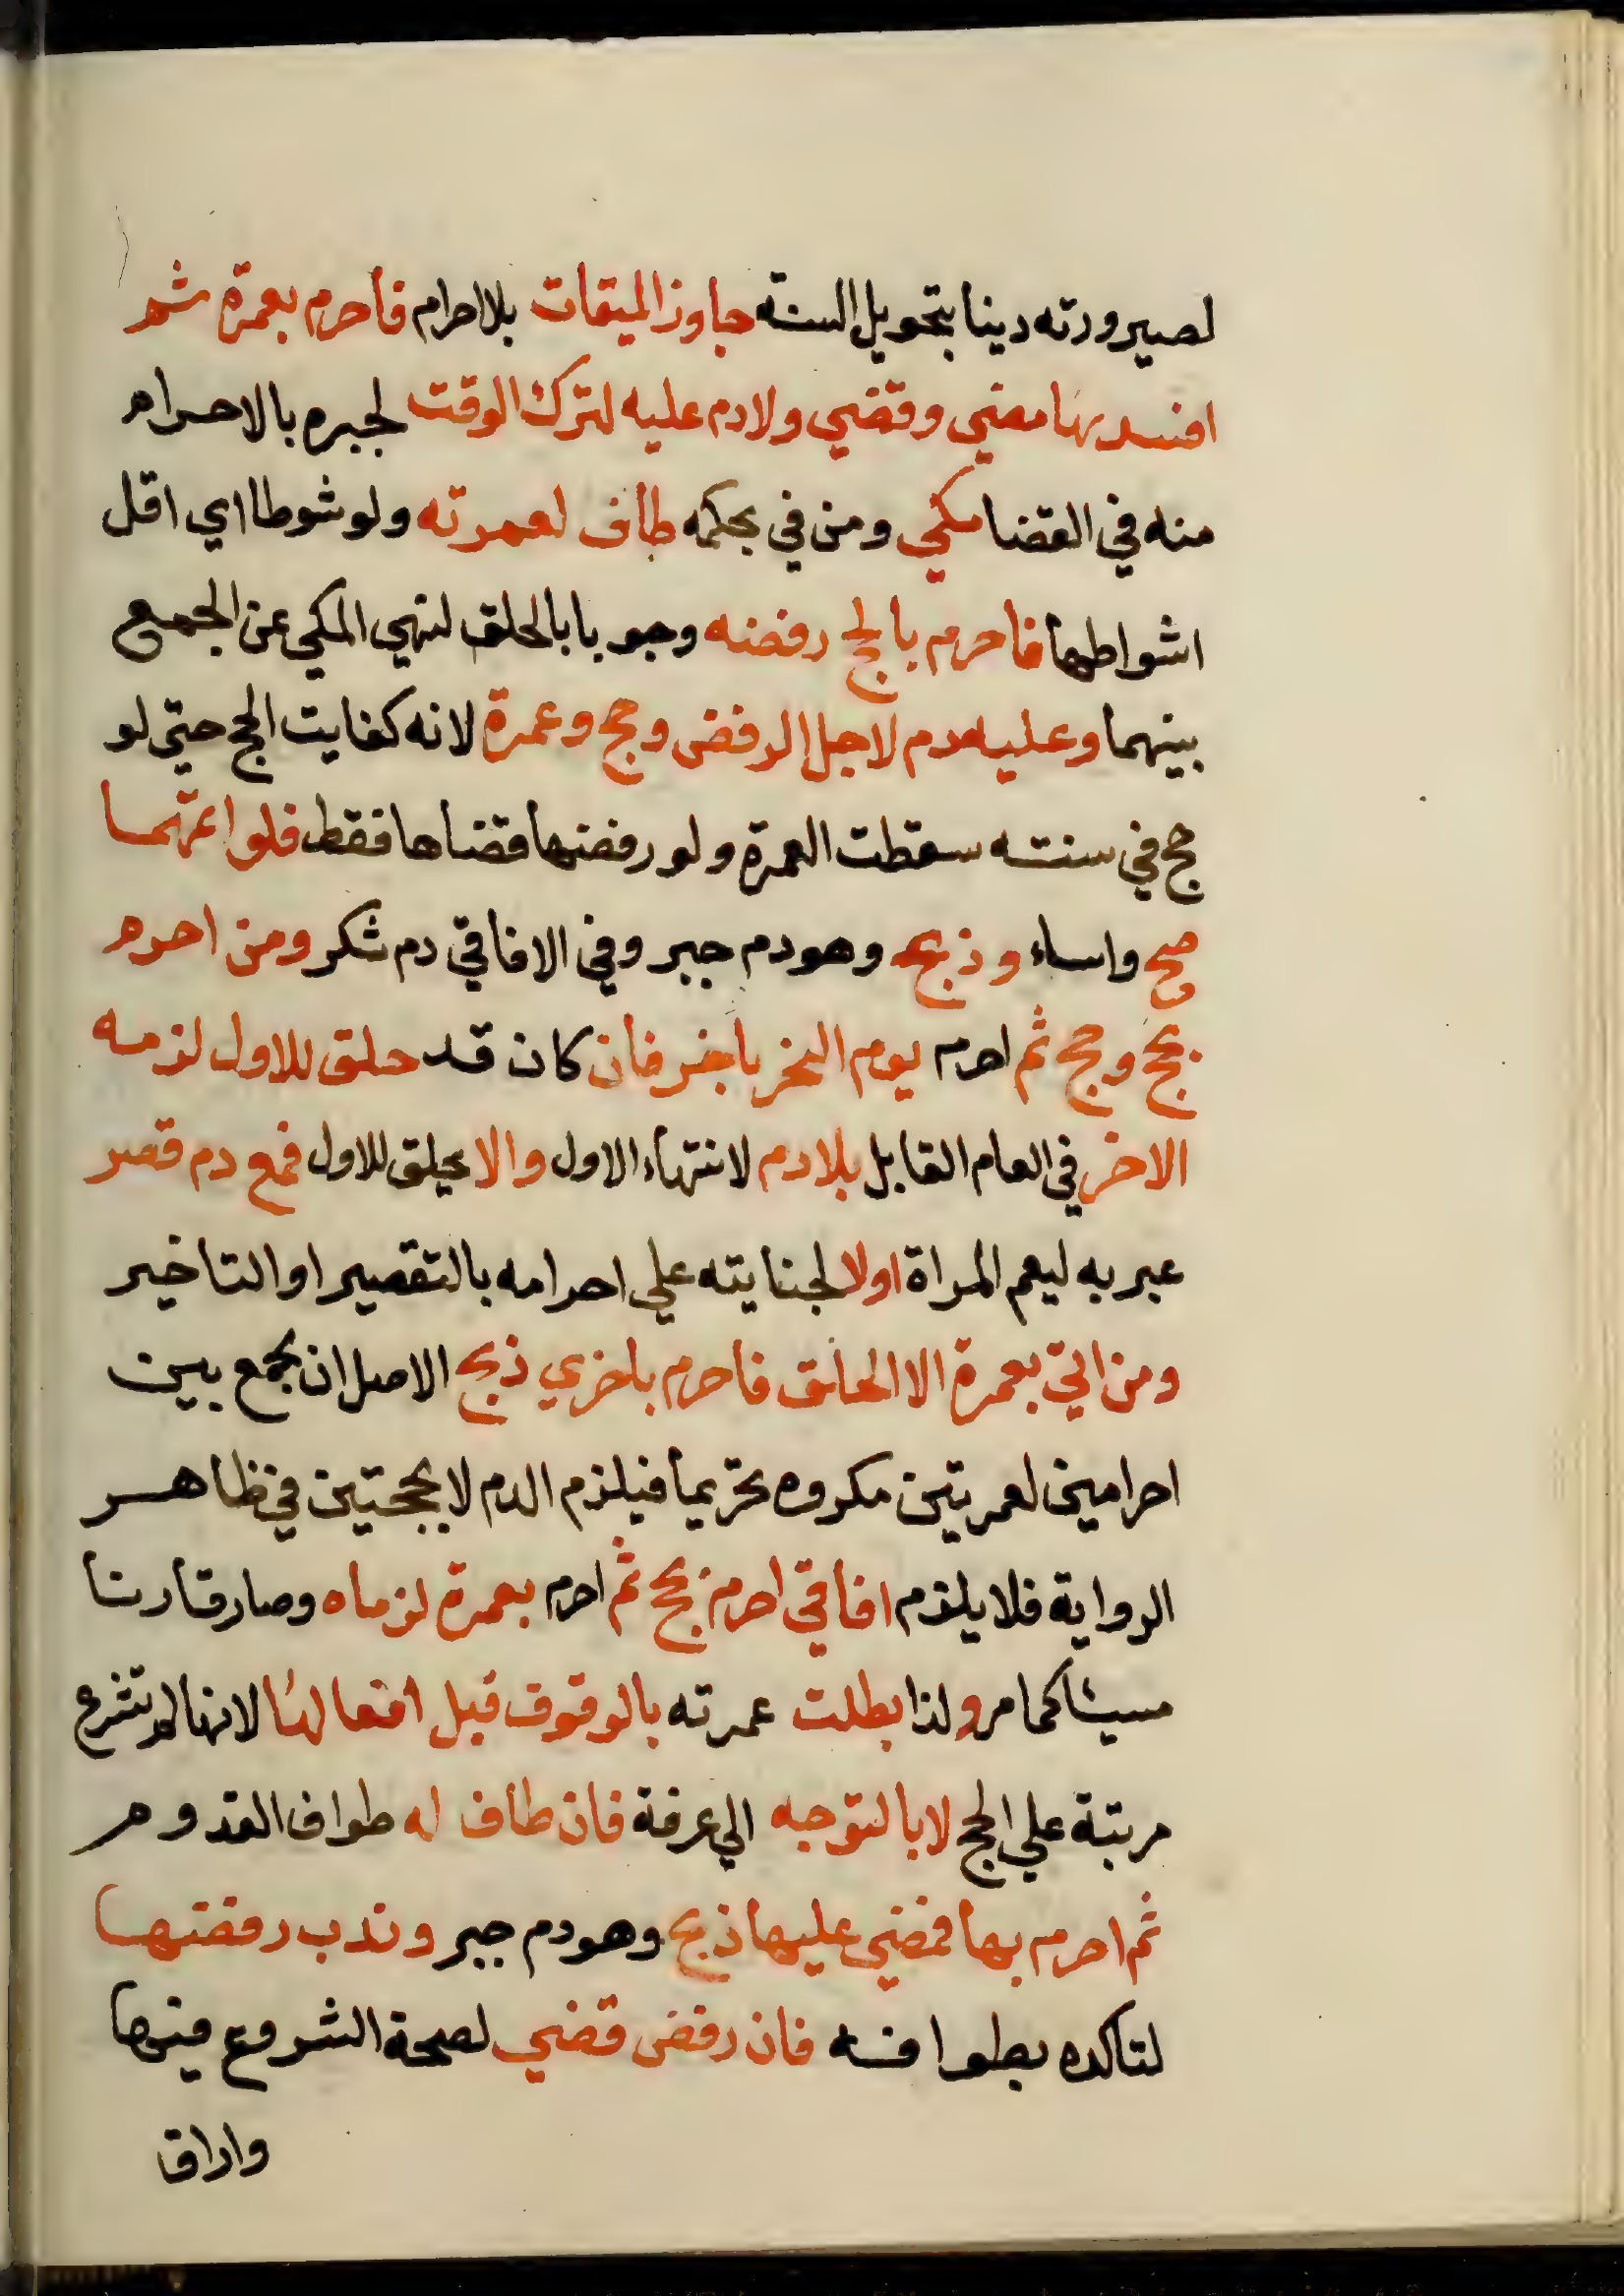 لصيرورته دينا بتحويل السنة جاوز الميقات بلا احرام فاحرم بعمرة ثم
افسدها مضي وقضي ولا دم عليه لترك الوقت لجبره بالاحرام
منه في القضا مكي ومن في بحكمه طاف لعمرته ولو شوطا اي اقل
اشواطها فاحرم بالحج رفضه وجوبا بالحلق لنهي المكي عن الجمع
بينهما وعليه دم لاجل الرفض وحج وعمرة لانه كفايت الحج حتي لو
حج في سنته سقطت العمرة ولو رفضها قضاها فقط فلو اتمهما
صح واساء وذبح وهو دم جبر وفي الافاقي دم شكر ومن احرم
بحج وحج ثم احرم يوم النحر باخر فان كان قد حلق للاول لزمه
الاخر في العام القابل بلا دم لانتهاء الاول والا يحلق للاول فمع دم قصر
عبر به ليعم المراة اولا لجنايته علي احرامه بالتقصير او التاخير
ومن اتي بعمرة الا الحلق فاحرم باخري ذبح الاصل ان يجمع بين
احرامين لعمرتين مكروه تحريما فيلزم الدم لا بحجتين في ظاهر
الرواية فلا يلزم افاقي احرم بحج ثم احرم بعمرة لزماه وصار قارنا
مسيئا كما مر ولذا بطلت عمرته بالوقوف قبل افعالها لانها لم تشرع
مرتبة علي الحج لا بالتوجه الي عرفة فان طاف له طواف القدوم
ثم احرم بها فمضي عليها ذبح وهو دم جبر وندب رفضها
لتاكده بطوافه فان رفض قضي لصحة الشروع فيها
واراق